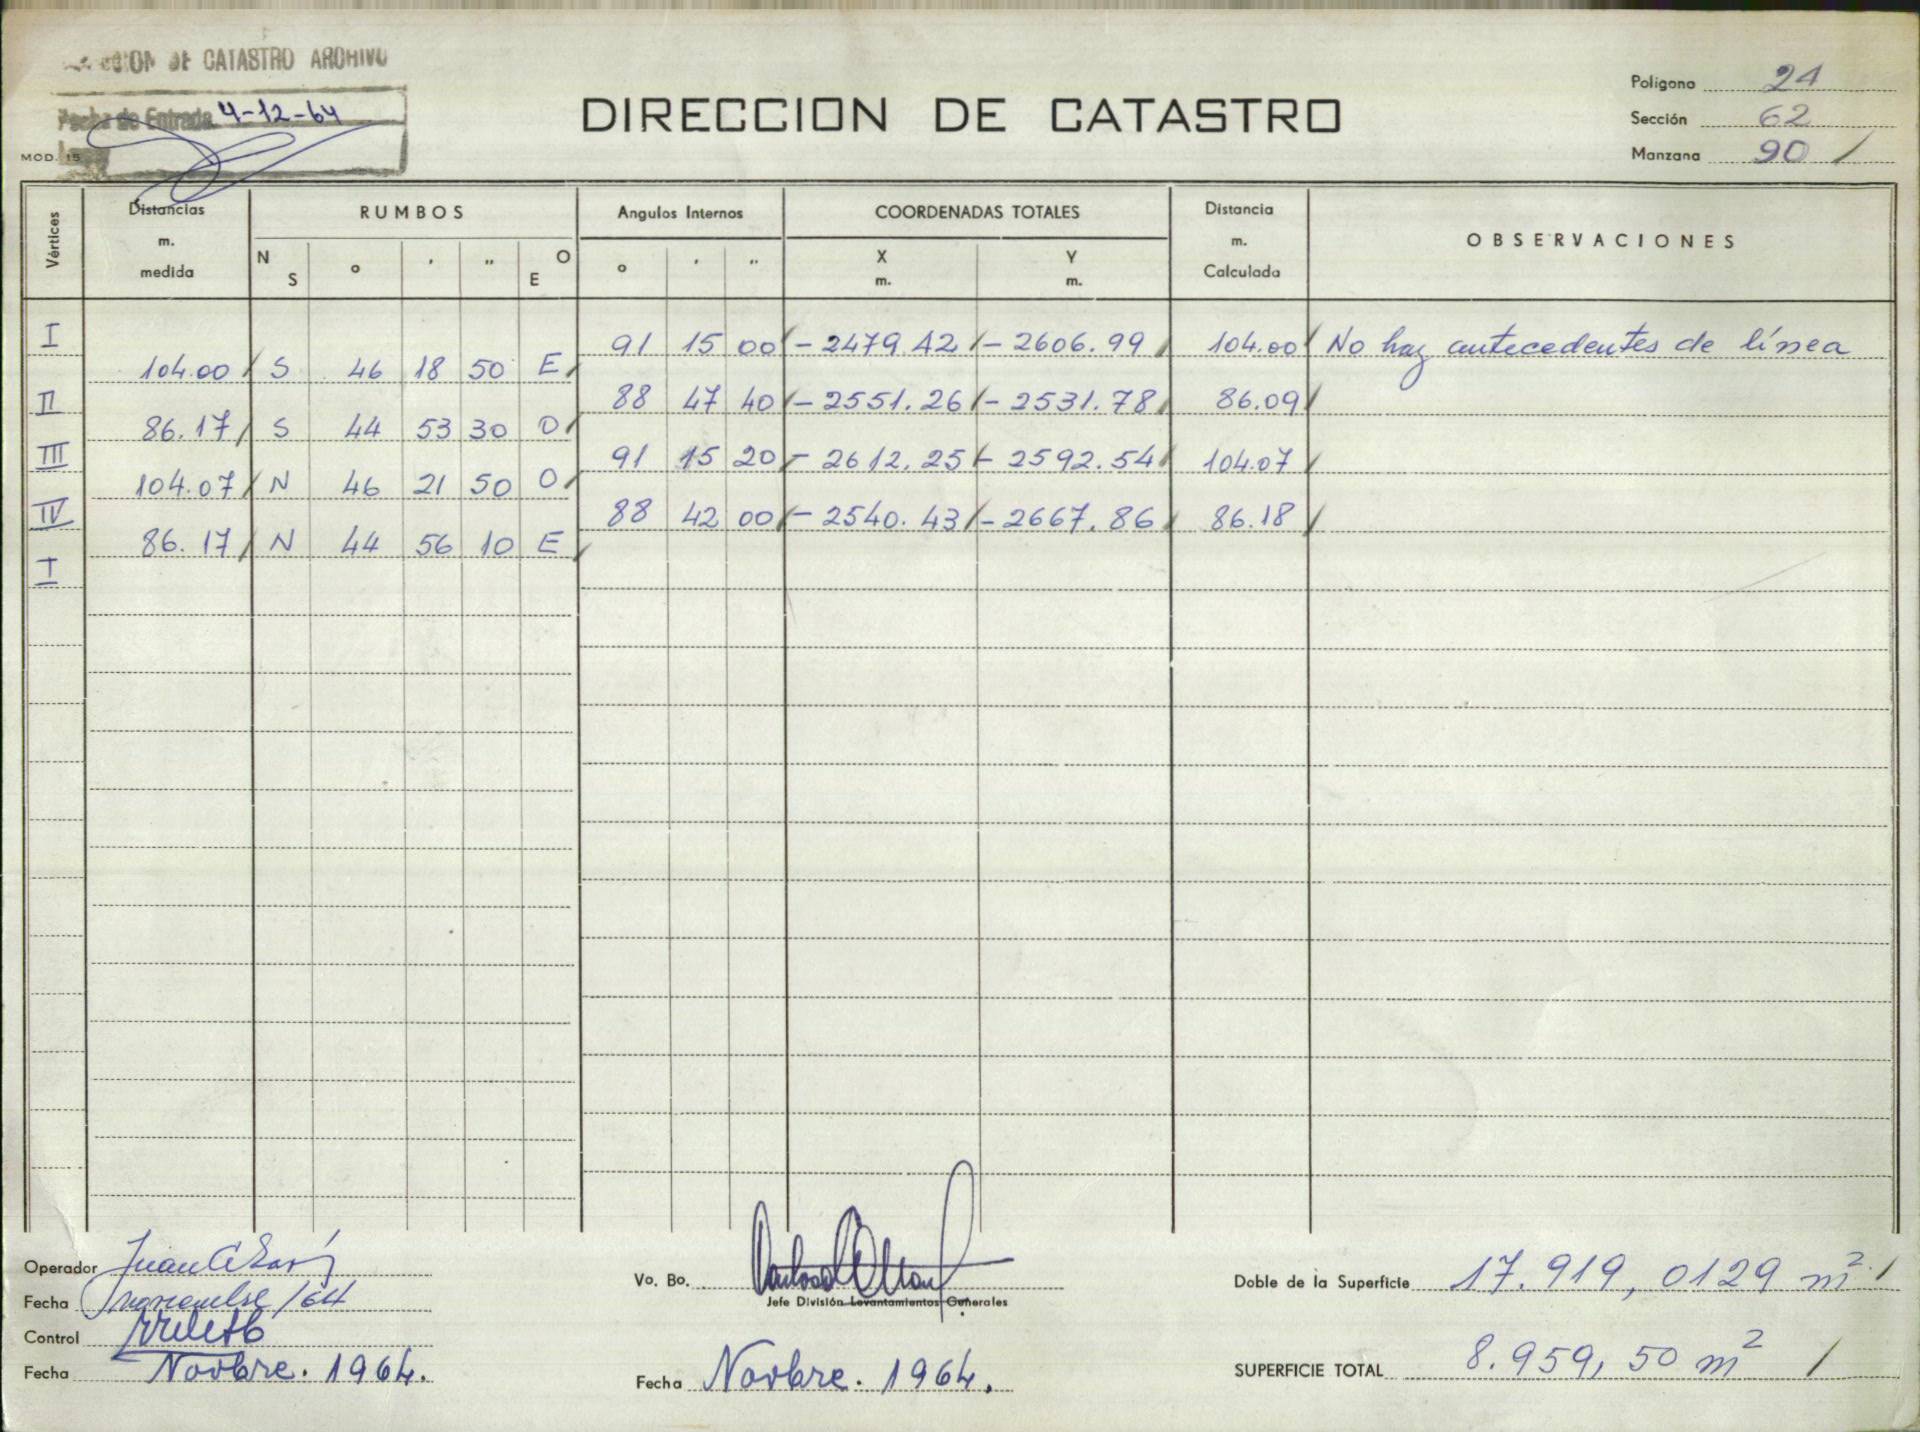 DE CATASTRO ARCHIVO
Fecha de Entrada 4-12-64
MOD. 15
DIRECCION DE CATASTRO
Polígono 24
Sección 62
Manzana 90
Vértices
Distancias m. medida
RUMBOS
N S o ' " O E
Angulos Internos
o ' "
COORDENADAS TOTALES
X m. Y m.
Distancia m. Calculada
OBSERVACIONES
I 91 15 00 -2479.42 -2606.99 104.00 No hay antecedentes de línea
104.00 S 46 18 50 E
II 88 47 40 -2551.26 -2531.78 86.09
86.17 S 44 53 30 O
III 91 15 20 -2612.25 -2592.54 104.07
104.07 N 46 21 50 O
IV 88 42 00 -2540.43 -2667.86 86.18
86.17 N 44 56 10 E
I
Operador Juan
Fecha noviembre/64
Control
Fecha Novbre. 1964.
Vo. Bo.
Jefe División Levantamientos Generales
Fecha Novbre. 1964.
Doble de la Superficie 17.919,0129 m²
SUPERFICIE TOTAL 8.959,50 m²